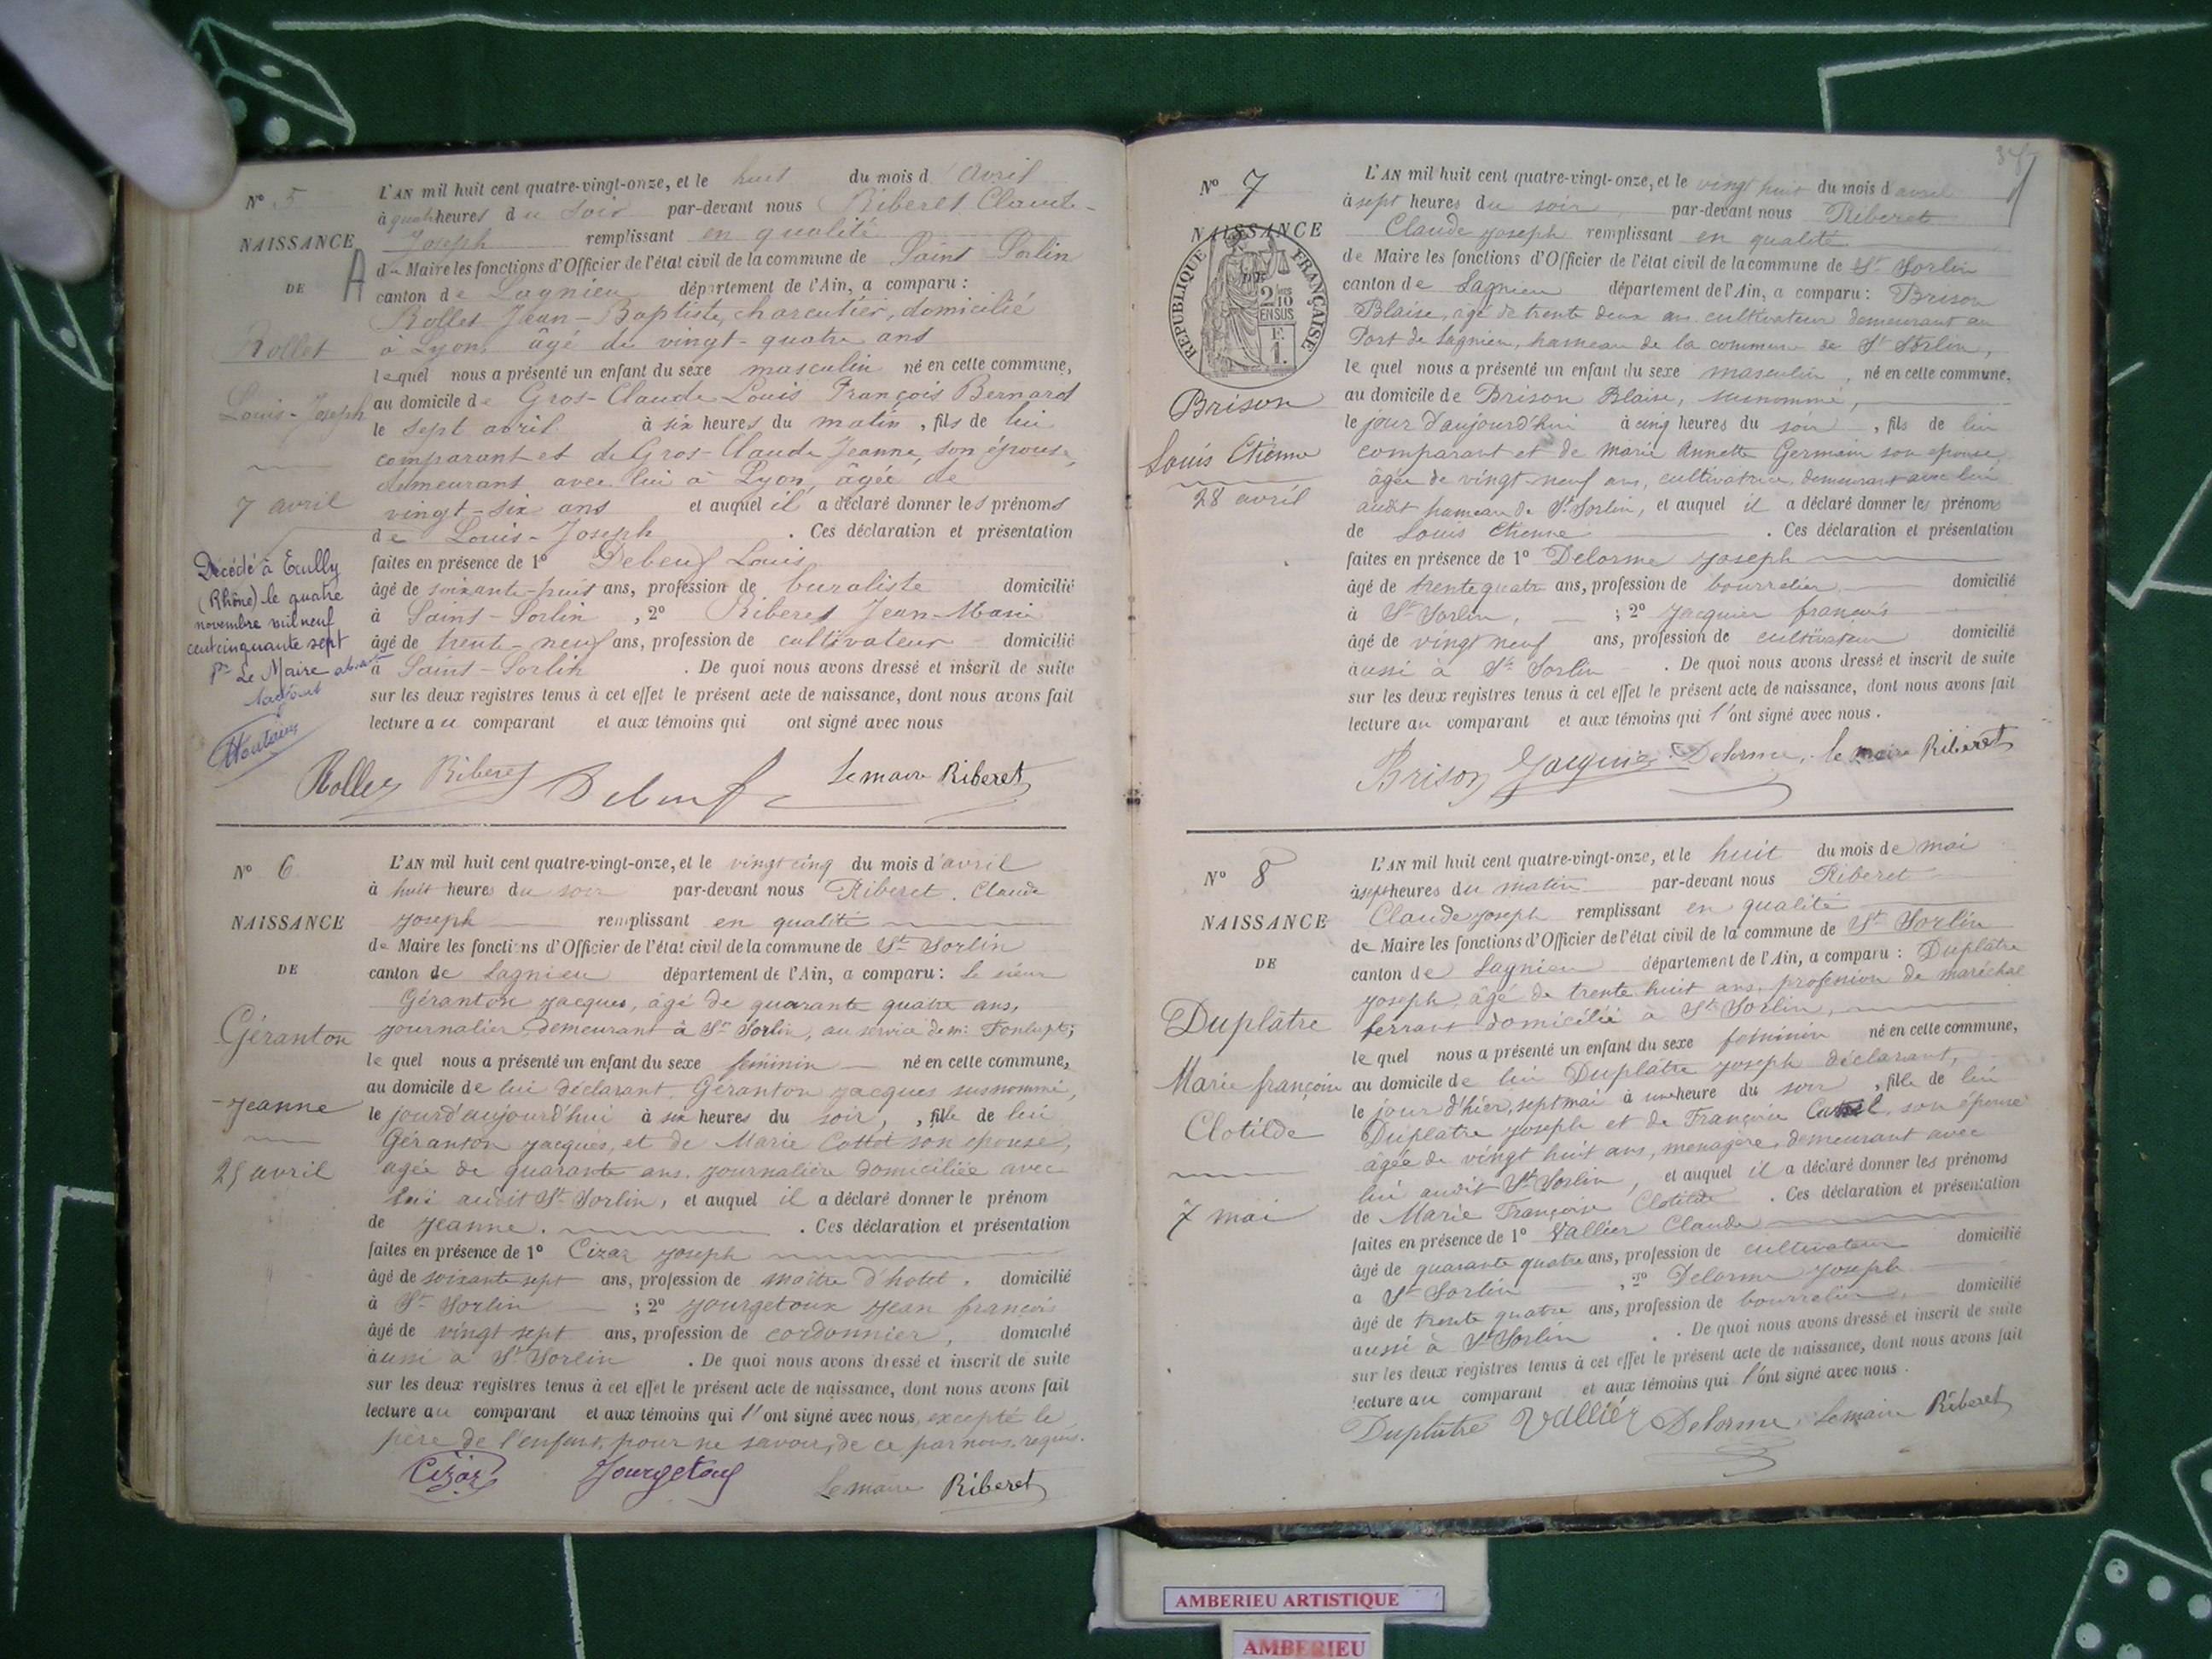 N° 5
NAISSANCE
DE
A
Rollet
Louis-Joseph
7 avril
Décédé à Ecully
(Rhône) le quatre
novembre mil neuf
cent cinquante sept
Le Maire
L'AN mil huit cent quatre-vingt-onze, et le huit du mois d'Avril
à quatre heures du soir par-devant nous Riberet Claude-
Joseph remplissant en qualité
de Maire les fonctions d'Officier de l'état civil de la commune de Saint-Sorlin
canton de Lagnieu département de l'Ain, a comparu :
Rollet Jean-Baptiste, charcutier, domicilié
à Lyon, âgé de vingt-quatre ans
lequel nous a présenté un enfant du sexe masculin né en cette commune,
au domicile de Gros-Claude Louis François Bernard
le sept avril à six heures du matin, fils de lui
comparant et de Gros-Claude Jeanne, son épouse,
demeurant avec lui à Lyon, âgée de
vingt-six ans et auquel il a déclaré donner les prénoms
de Louis-Joseph . Ces déclaration et présentation
faites en présence de 1° Debeuf Louis
âgé de soixante-huit ans, profession de buraliste domicilié
à Saint-Sorlin , 2° Riberet Jean-Marie
âgé de trente-neuf ans, profession de cultivateur domicilié
à Saint-Sorlin . De quoi nous avons dressé et inscrit de suite
sur les deux registres tenus à cet effet le présent acte de naissance, dont nous avons fait
lecture au comparant et aux témoins qui ont signé avec nous
Rollet Riberet Debeuf Le maire Riberet
N° 6
NAISSANCE
DE
Géranton
Jeanne
25 avril
L'AN mil huit cent quatre-vingt-onze, et le vingt cinq du mois d'avril
à huit heures du soir par-devant nous Riberet Claude
Joseph remplissant en qualité
de Maire les fonctions d'Officier de l'état civil de la commune de St Sorlin
canton de Lagnieu département de l'Ain, a comparu : le sieur
Géranton Jacques, âgé de quarante quatre ans,
journalier, demeurant à St Sorlin, au service de m: Fonlupt;
le quel nous a présenté un enfant du sexe féminin né en cette commune,
au domicile de lui déclarant Géranton Jacques susnommé,
le jour d'aujourd'hui à six heures du soir, , fille de lui
Géranton Jacques, et de Marie Cottet son épouse,
agée de quarante ans, journalière domiciliée avec
lui audit St Sorlin, et auquel il a déclaré donner le prénom
de Jeanne. . Ces déclaration et présentation
faites en présence de 1° Cizar Joseph
âgé de soixante sept ans, profession de maître d'hotel, domicilié
à St Sorlin ; 2° Jourgetoux Jean françois
âgé de vingt sept ans, profession de cordonnier, domicilié
aussi à St Sorlin . De quoi nous avons dressé et inscrit de suite
sur les deux registres tenus à cet effet le présent acte de naissance, dont nous avons fait
lecture au comparant et aux témoins qui l'ont signé avec nous, excepté le
père de l'enfant, pour ne savoir, de ce par nous requis.
Cizar Le maire Riberet
N° 7
NAISSANCE
RÉPUBLIQUE FRANÇAISE
2/10 EN SUS
F.
1.
Brison
Louis Etienne
28 avril
L'AN mil huit cent quatre-vingt-onze, et le vingt huit du mois d'avril
à sept heures du soir par-devant nous Riberet
Claude Joseph remplissant en qualité
de Maire les fonctions d'Officier de l'état civil de la commune de St Sorlin
canton de Lagnieu département de l'Ain, a comparu : Brison
Blaise, agé de trente deux ans cultivateur demeurant au
Port de Lagnieu, hameau de la commune de St Sorlin,
le quel nous a présenté un enfant du sexe masculin, né en cette commune,
au domicile de Brison Blaise, susnommé,
le jour d'aujourd'hui à cinq heures du soir , fils de lui
comparant et de Marie Annette Germain son épouse,
âgée de vingt-neuf ans, cultivatrice, demeurant avec lui
audit hameau de St Sorlin, et auquel il a déclaré donner les prénoms
de Louis Etienne . Ces déclaration et présentation
faites en présence de 1° Delorme Joseph
âgé de trente quatre ans, profession de bourrelier domicilié
à St Sorlin, ; 2° Jacquier françois
âgé de vingt neuf ans, profession de cultivateur domicilié
aussi à St Sorlin . De quoi nous avons dressé et inscrit de suite
sur les deux registres tenus à cet effet le présent acte de naissance, dont nous avons fait
lecture au comparant et aux témoins qui l'ont signé avec nous.
Brison Jacquier Delorme, le maire Riberet
N° 8
NAISSANCE
DE
Duplâtre
Marie françoise
Clotilde
7 mai
L'AN mil huit cent quatre-vingt-onze, et le huit du mois de mai
à sept heures du matin par-devant nous Riberet
Claude Joseph remplissant en qualité
de Maire les fonctions d'Officier de l'état civil de la commune de St Sorlin
canton de Lagnieu département de l'Ain, a comparu : Duplâtre
Joseph, âgé de trente huit ans, profession de maréchal
ferrant domicilié à St Sorlin,
le quel nous a présenté un enfant du sexe féminin né en cette commune,
au domicile de lui Duplâtre Joseph déclarant,
le jour d'hier, sept mai à une heure du soir , fille de lui
Duplatre Joseph et de Françoise son épouse
âgée de vingt huit ans, menagère, demeurant avec
lui audit St Sorlin, et auquel il a déclaré donner les prénoms
de Marie Françoise Clotilde . Ces déclaration et présentation
faites en présence de 1° Vallier Claude
âgé de quarante quatre ans, profession de cultivateur domicilié
a St Sorlin , 2° Delorme Joseph
âgé de trente quatre ans, profession de bourrelier, domicilié
aussi à St Sorlin . De quoi nous avons dressé et inscrit de suite
sur les deux registres tenus à cet effet le présent acte de naissance, dont nous avons fait
lecture au comparant et aux témoins qui l'ont signé avec nous.
Duplatre Vallier Delorme Le maire Riberet
AMBERIEU ARTISTIQUE
AMBERIEU